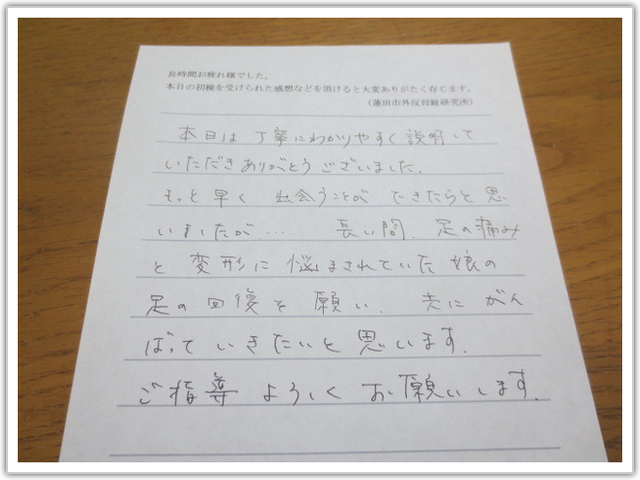 長時間お疲れ様でした。
本日の初検を受けられた感想などを頂けると大変ありがたく存じます。
(蓮田市外反母趾研究所)
本日は 丁寧にわかりやすく 説明して
いただき ありがとう ございました.
もっと 早く 出会うことが できたらと 思
いましたが..... 長い間. 足の痛み
と 変形に 悩まされていた 娘の
足の 回復を 願い. 共に がん
ばって いきたいと 思います.
ご指導 よろしく お願いします.